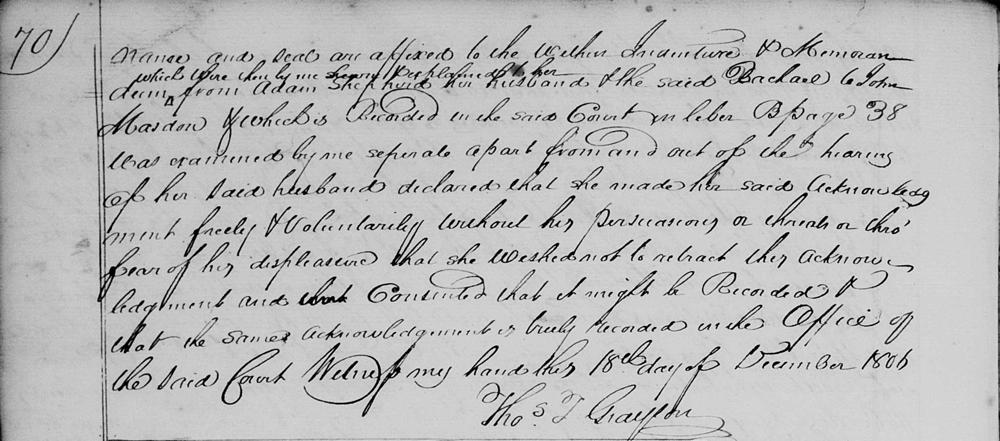 70)
name and seal are affixed to the within Indenture & Memoran
which were then by me shewn & explained to her
dum from Adam Shepherd her husband & the said Rachael to John
Mardon & which is Recorded in the said Court in liber B page 38
was examined by me seperate apart from and out of the hearing
of her said husband declared that she made her said Acknowledg
ment freely & Voluntarily without his persuasions or threats or thro'
fear of his displeasure that she wished not to retract this acknow
ledgment and Consented that it might be Recorded &
that the same acknowledgement is truly recorded in the Office of
the said Court Witness my hand this 18th day of December 1806
Thos. T Grayson